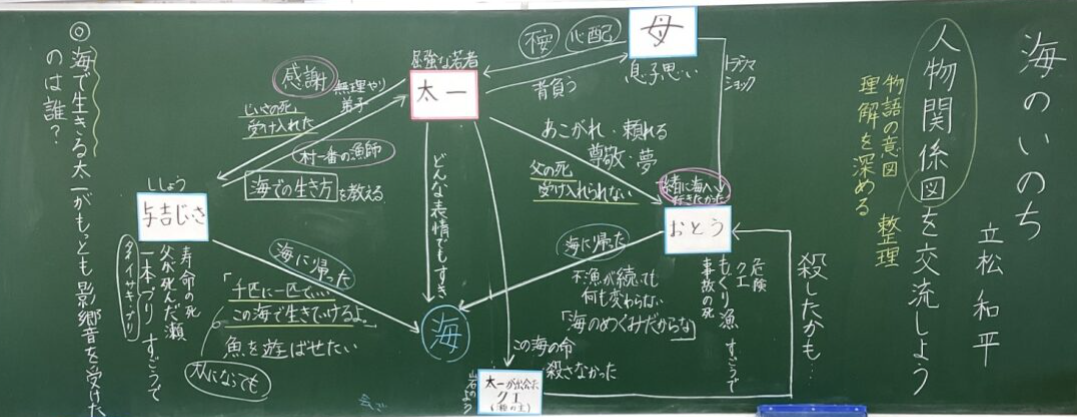 海のいのち
立松 和平
人物関係図を交流しよう
物語の意図
理解を深める
整理
母
息子思い
不安
心配
背負う
トラウマ
ショック
屈強な若者
太一
感謝
無理やり
弟子
じいさの死
受け入れた
村一番の漁師
海での生き方を教える
あこがれ・頼れる
尊敬・夢
父の死
受け入れられない
一緒に海へ
行きたかった
おとう
危険
クエ
もぐり漁 すごうで
事故の死
殺したかも…
海に帰った
不漁が続いても
何も変わらない
「海のめぐみだからな」
どんな表情でもすき
海
この海の命
殺さなかった
太一が出会った
クエ
(瀬の主)
岩のよう
ししょう
与吉じいさ
寿命の死
父が死んだ瀬
一本づり すごうで
タイ・イサキ・ブリ
海に帰った
「千匹に一匹で…
この海で生きていけるよ。」
魚を遊ばせたい
◎海で生きる太一がもっとも影響を受けた
のは誰?